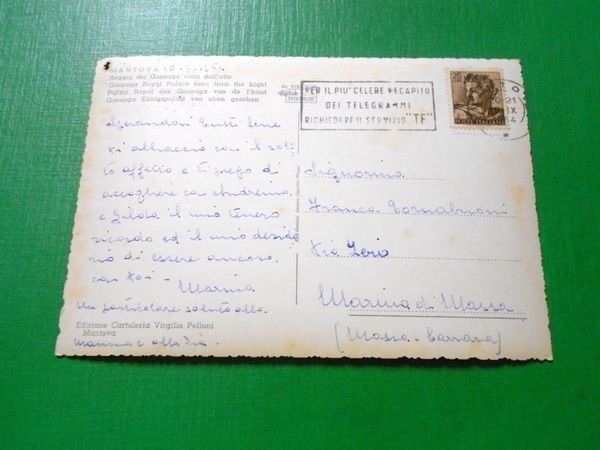 MANTOVA
Reggia dei Gonzaga vista dall'alto
Gonzaga Royal Palace seen from the hight
Palais Royal des Gonzaga vue de l'haut
Gonzaga Königspalast von oben gesehen
PER IL PIU' CELERE RECAPITO
DEI TELEGRAMMI
RICHIEDERE IL SERVIZIO "TF"
POSTE ITALIANE
21
IX
64
Sperandovi tutti bene
vi abbraccio con il soli-
to affetto e ti prego di
accogliere con
e il mio tenero
ricordo ed il mio deside
rio di essere ancora
con voi -
Marina
Un particolare saluto alla
mamma e alla zia
Signorina
Franca
Via
Marina di Massa
(Massa-Carrara)
Edizione Cartoleria Virgilio Pelloni
Mantova